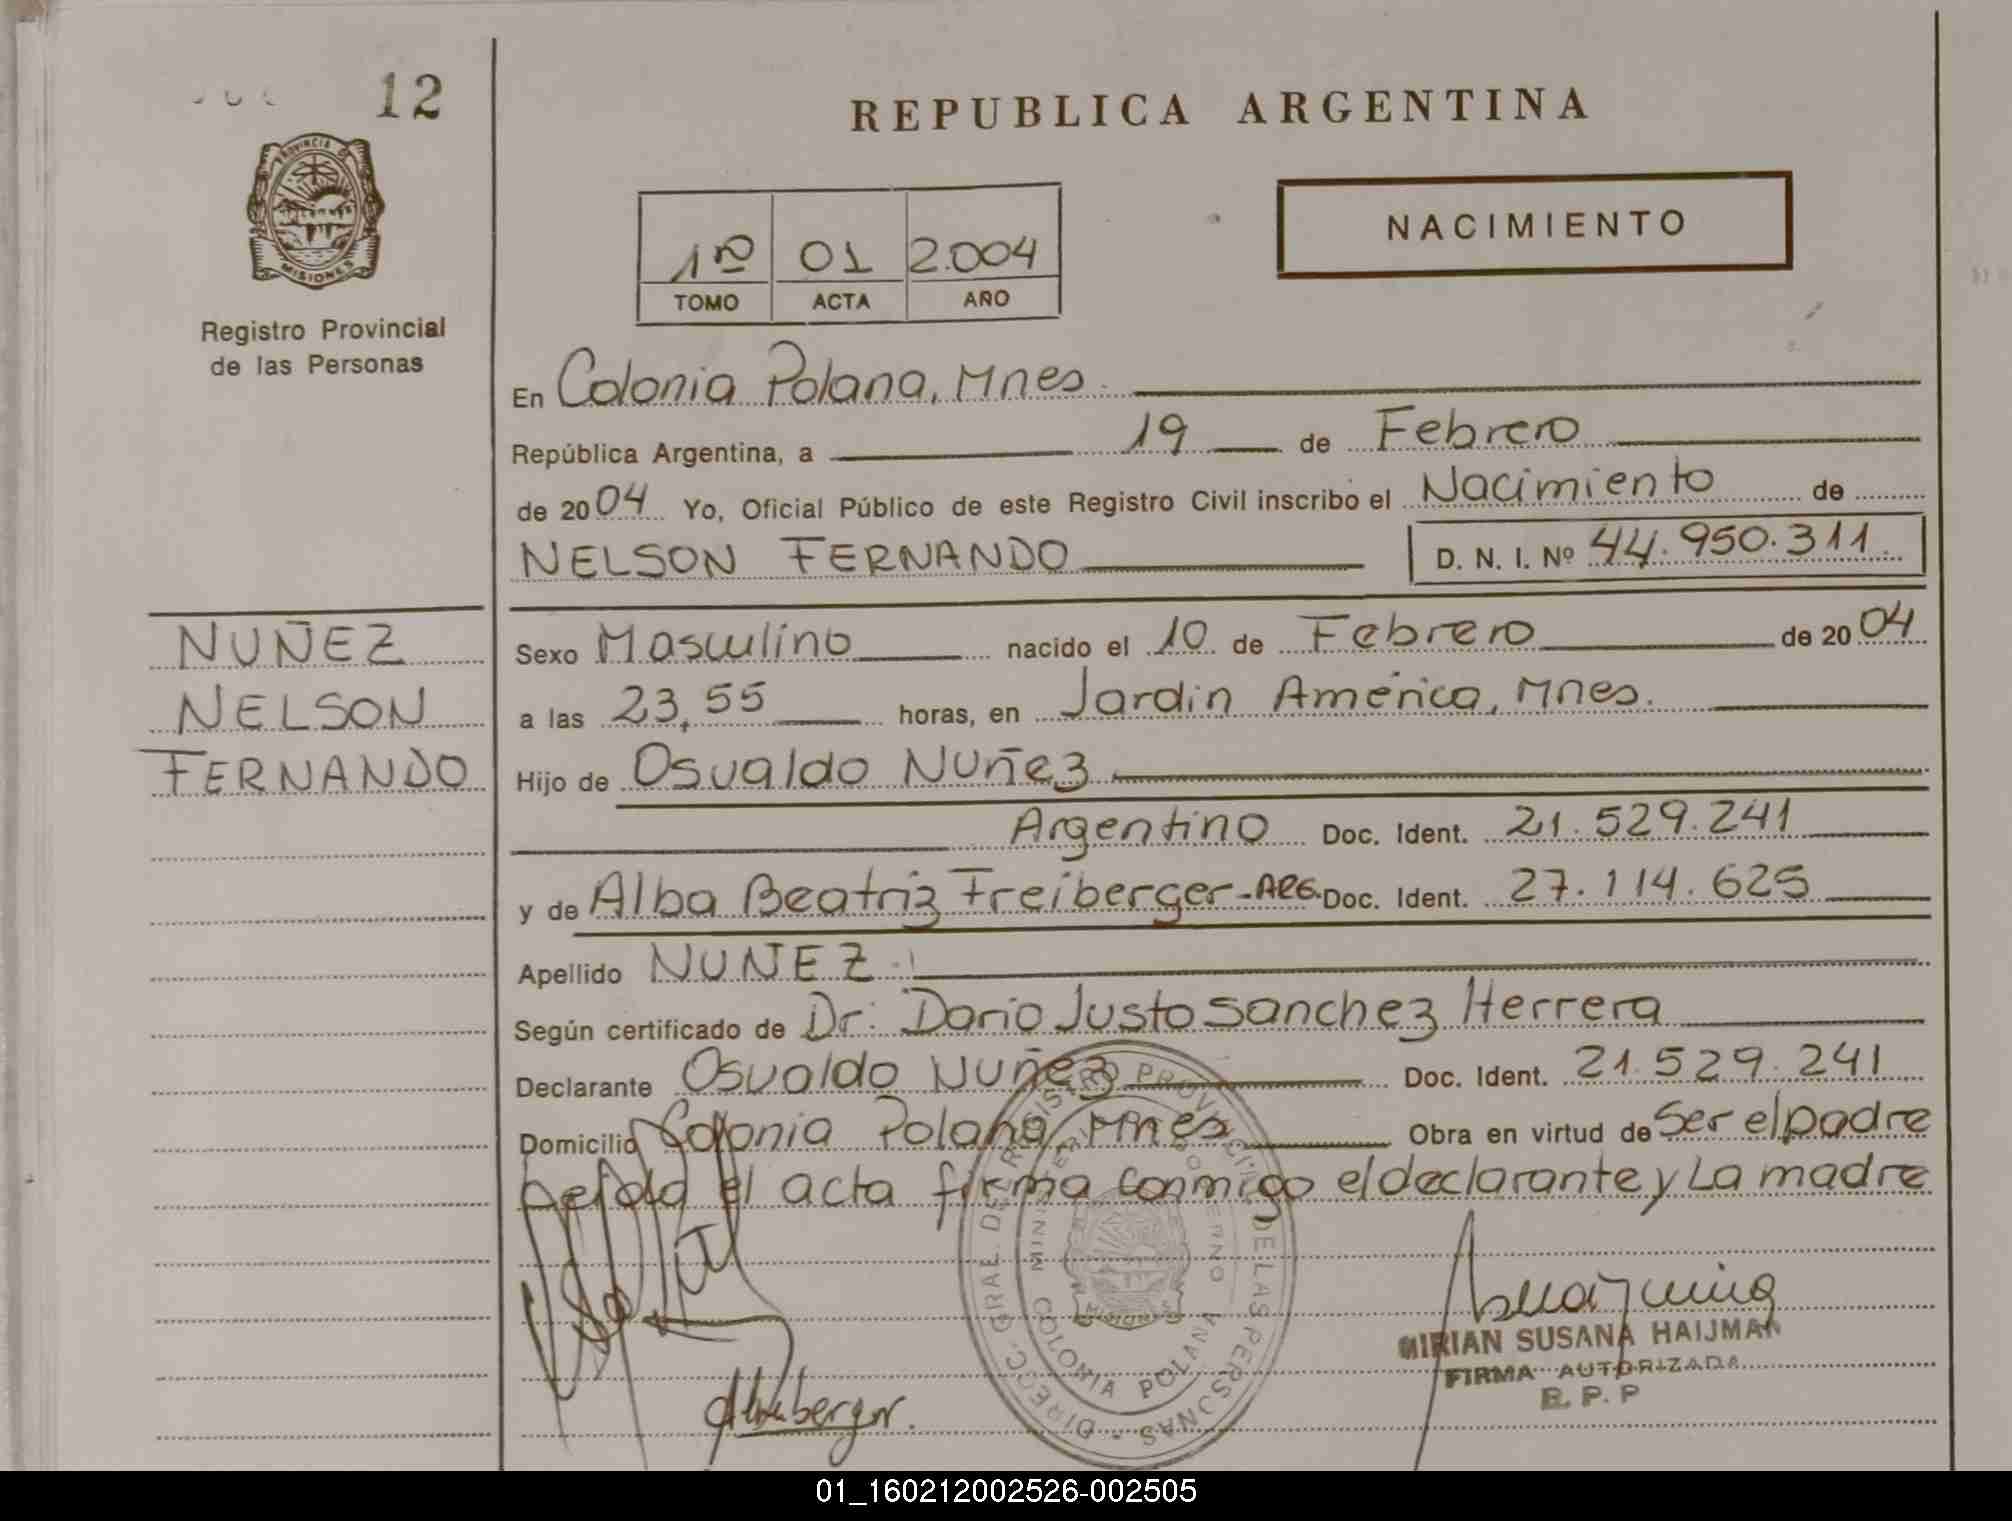 12
REPUBLICA ARGENTINA
PROVINCIA DE
MISIONES
Registro Provincial
de las Personas
NACIMIENTO
1º 01 2.004
TOMO ACTA AÑO
En Colonia Polana, Mnes.
República Argentina, a 19 de Febrero
de 2004 Yo, Oficial Público de este Registro Civil inscribo el Nacimiento de
NELSON FERNANDO D. N. I. Nº 44.950.311
NUÑEZ
NELSON
FERNANDO
Sexo Masculino nacido el 10 de Febrero de 2004
a las 23,55 horas, en Jardin América, Mnes.
Hijo de Osvaldo Nuñez
Argentino Doc. Ident. 21.529.241
y de Alba Beatriz Freiberger-ARG. Doc. Ident. 27.114.625
Apellido NUÑEZ
Según certificado de Dr. Dario Justo Sanchez Herrera
Declarante Osvaldo Nuñez Doc. Ident. 21.529.241
Domicilio Colonia Polana, Mnes Obra en virtud de Ser el padre
el acta firma conmigo el declarante y La madre
DIRECC. GRAL. DE REGISTRO PROVINCIAL DE LAS PERSONAS
MINISTERIO GOBIERNO
MISIONES
COLONIA POLANA
MIRIAN SUSANA HAIJMAN
FIRMA AUTORIZADA
R. P. P
01_160212002526-002505